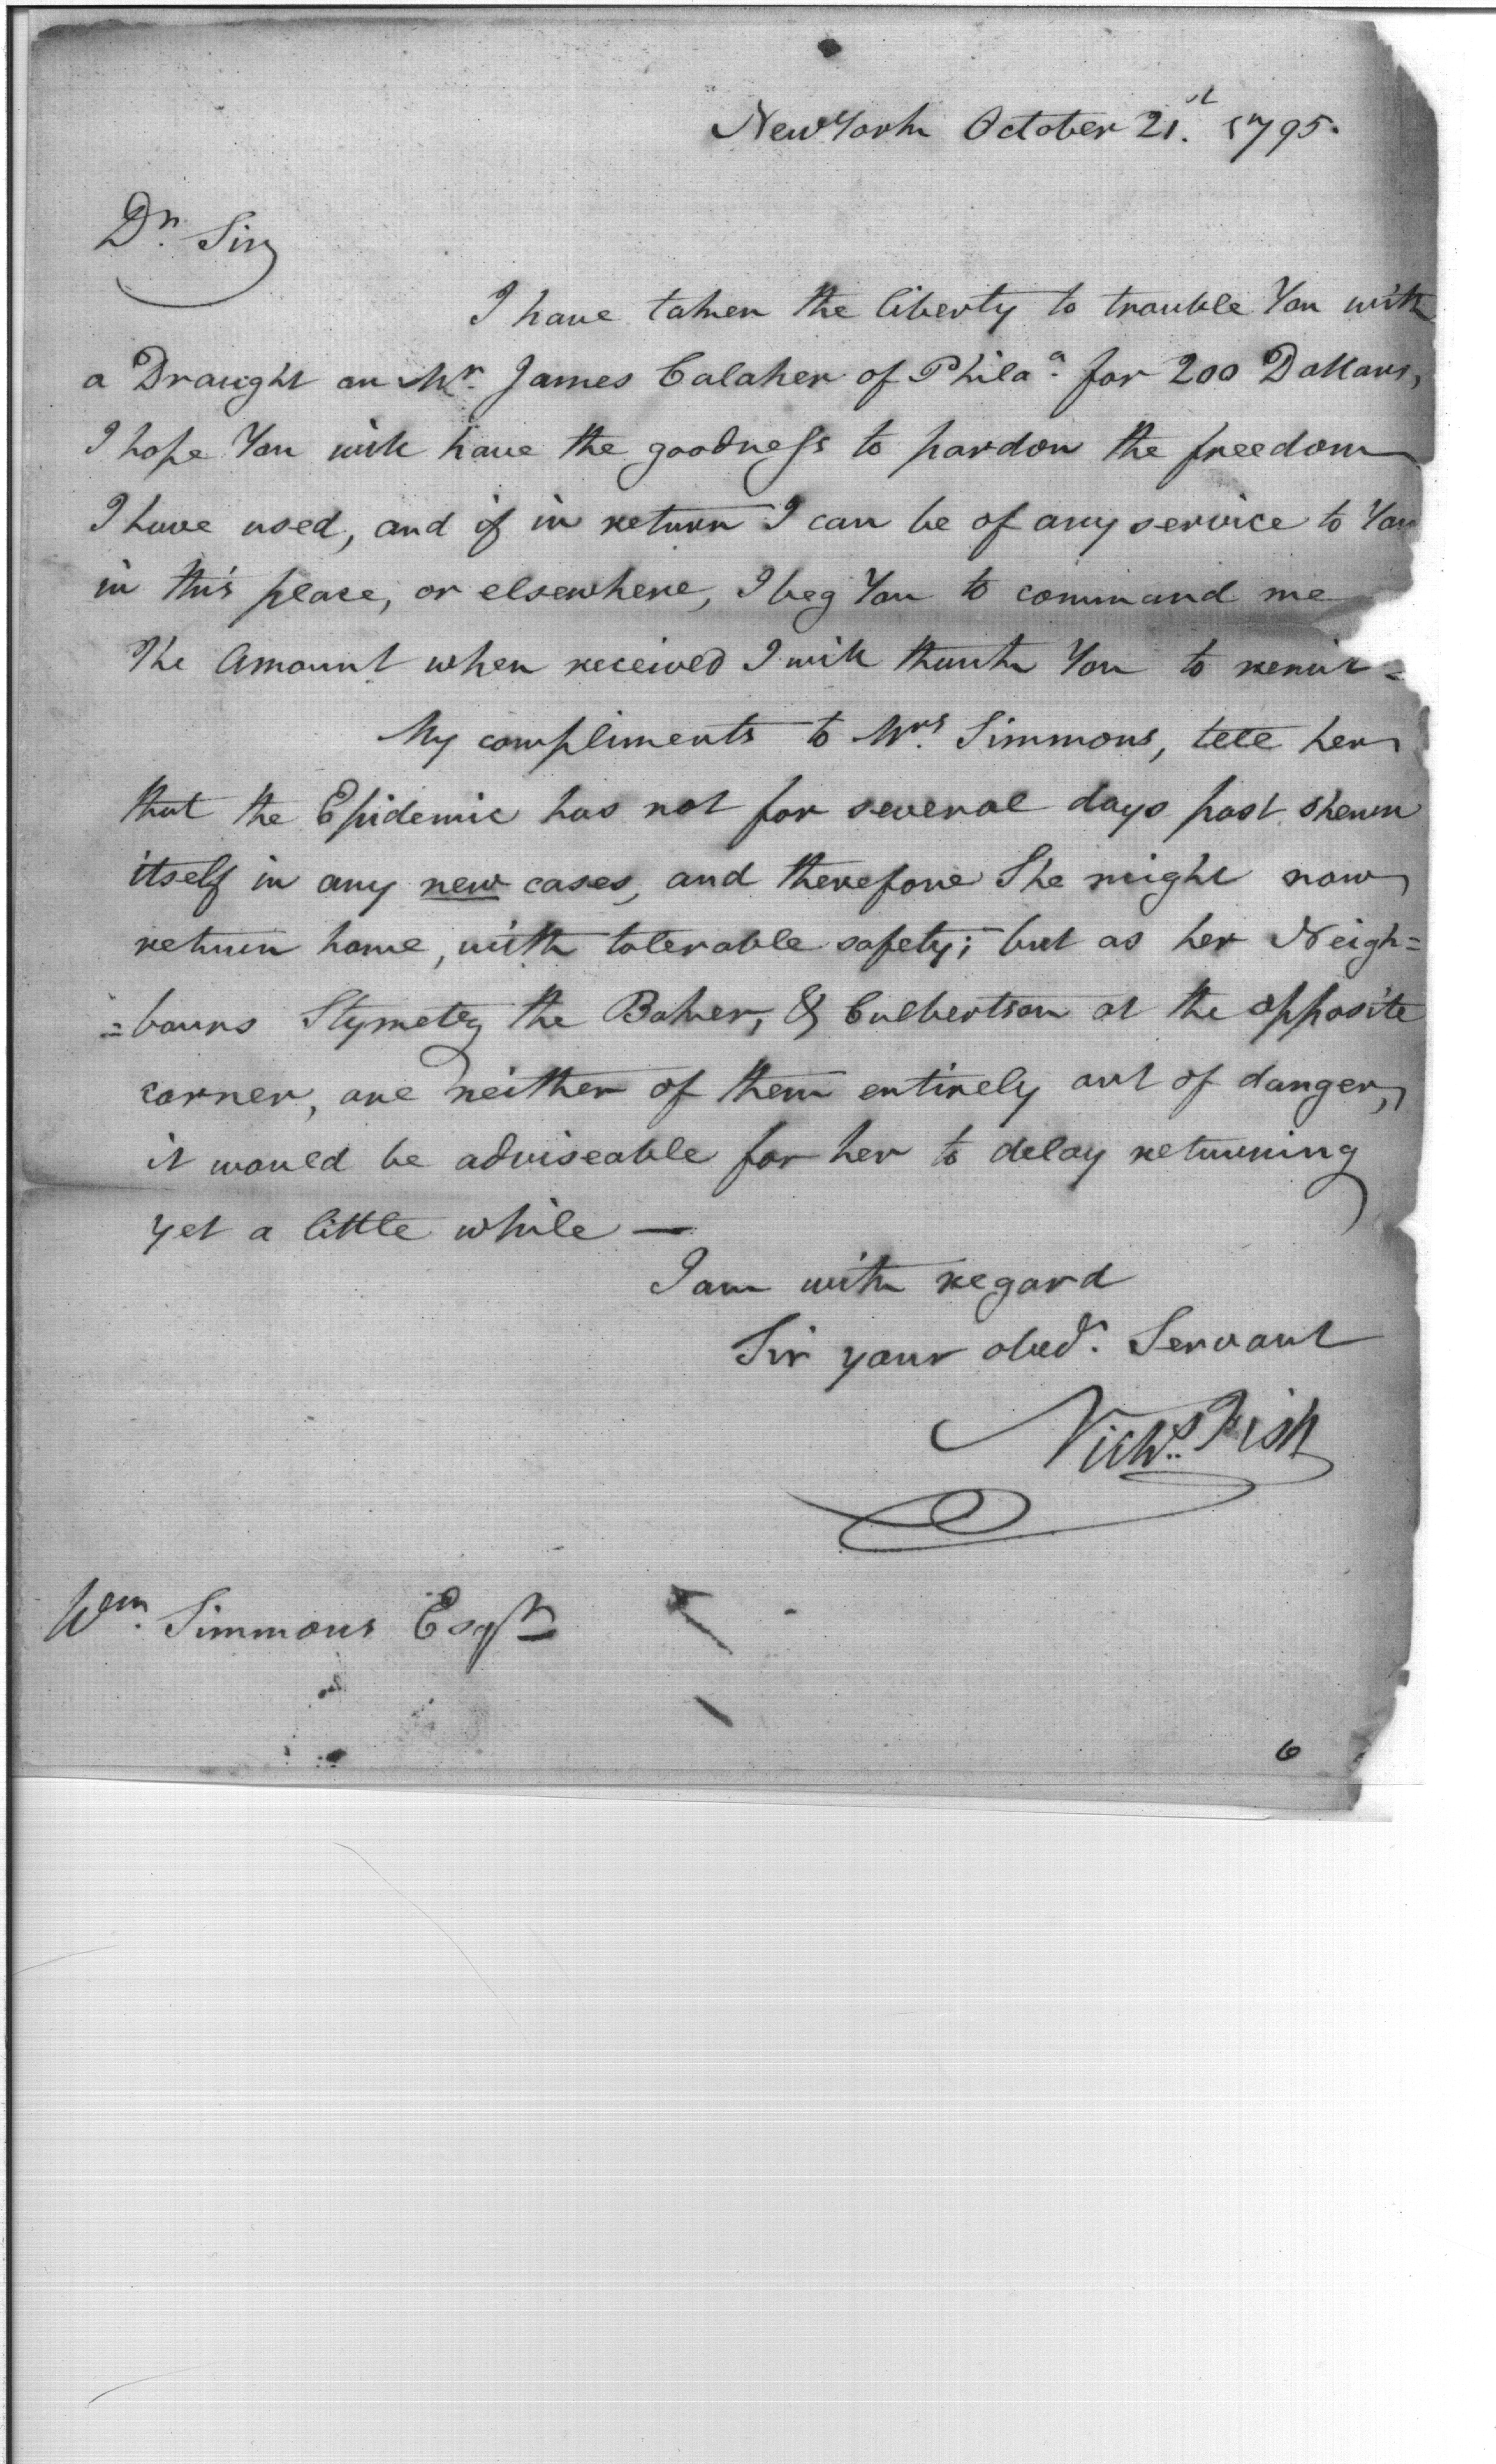 New York October 21.st 1795.
Dr. Sir
I have taken the liberty to trouble You with
a Draught on Mr. James Calaher of Phila.a for 200 Dollars,
I hope You will have the goodness to pardon the freedom
I have used, and if in return I can be of any service to You
in this place, or elsewhere, I beg You to command me
The Amount when received I will thank You to remit =
My compliments to Mrs. Simmons, tell her
that the Epidemic has not for several days past shewn
itself in any new cases, and therefore She might now
return home, with tolerable safety; but as her Neigh=
=bours Stymets the Baker, & Culbertson at the opposite
corner, are neither of them entirely out of danger,
it would be adviseable for her to delay returning
yet a little while —
I am with regard
Sir your obed.t Servant
Nichs. Fish
Wm. Simmons Esqr
6